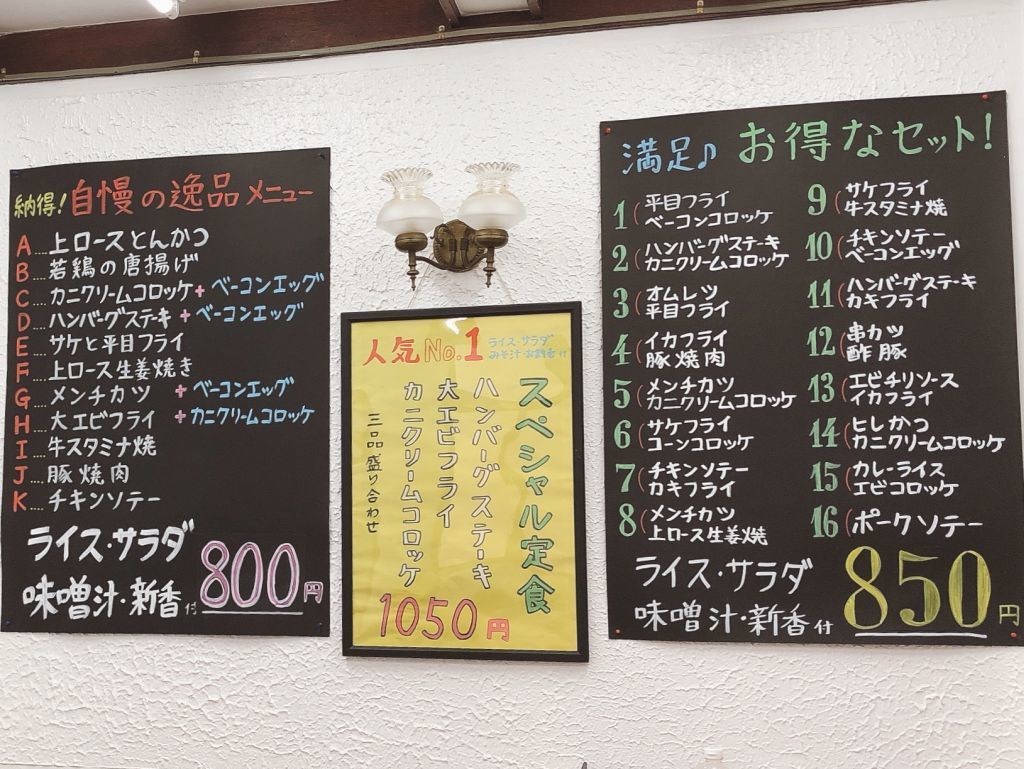 納得! 自慢の逸品メニュー
A....上ロースとんかつ
B....若鶏の唐揚げ
C....カニクリームコロッケ+ベーコンエッグ
D....ハンバーグステーキ+ベーコンエッグ
E....サケと平目フライ
F....上ロース生姜焼き
G....メンチカツ+ベーコンエッグ
H....大エビフライ+カニクリームコロッケ
I....牛スタミナ焼
J....豚焼肉
K....チキンソテー
ライス・サラダ
味噌汁・新香付 800円
人気No.1
ライス・サラダ
みそ汁・お新香付
スペシャル定食
ハンバーグステーキ
大エビフライ
カニクリームコロッケ
三品盛り合わせ
1050円
満足♪ お得なセット!
1(平目フライ
ベーコンコロッケ
2(ハンバーグステーキ
カニクリームコロッケ
3(オムレツ
平目フライ
4(イカフライ
豚焼肉
5(メンチカツ
カニクリームコロッケ
6(サケフライ
コーンコロッケ
7(チキンソテー
カキフライ
8(メンチカツ
上ロース生姜焼
9(サケフライ
牛スタミナ焼
10(チキンソテー
ベーコンエッグ
11(ハンバーグステーキ
カキフライ
12(串カツ
酢豚
13(エビチリソース
イカフライ
14(ヒレかつ
カニクリームコロッケ
15(カレーライス
エビコロッケ
16(ポークソテー
ライス・サラダ
味噌汁・新香付 850円